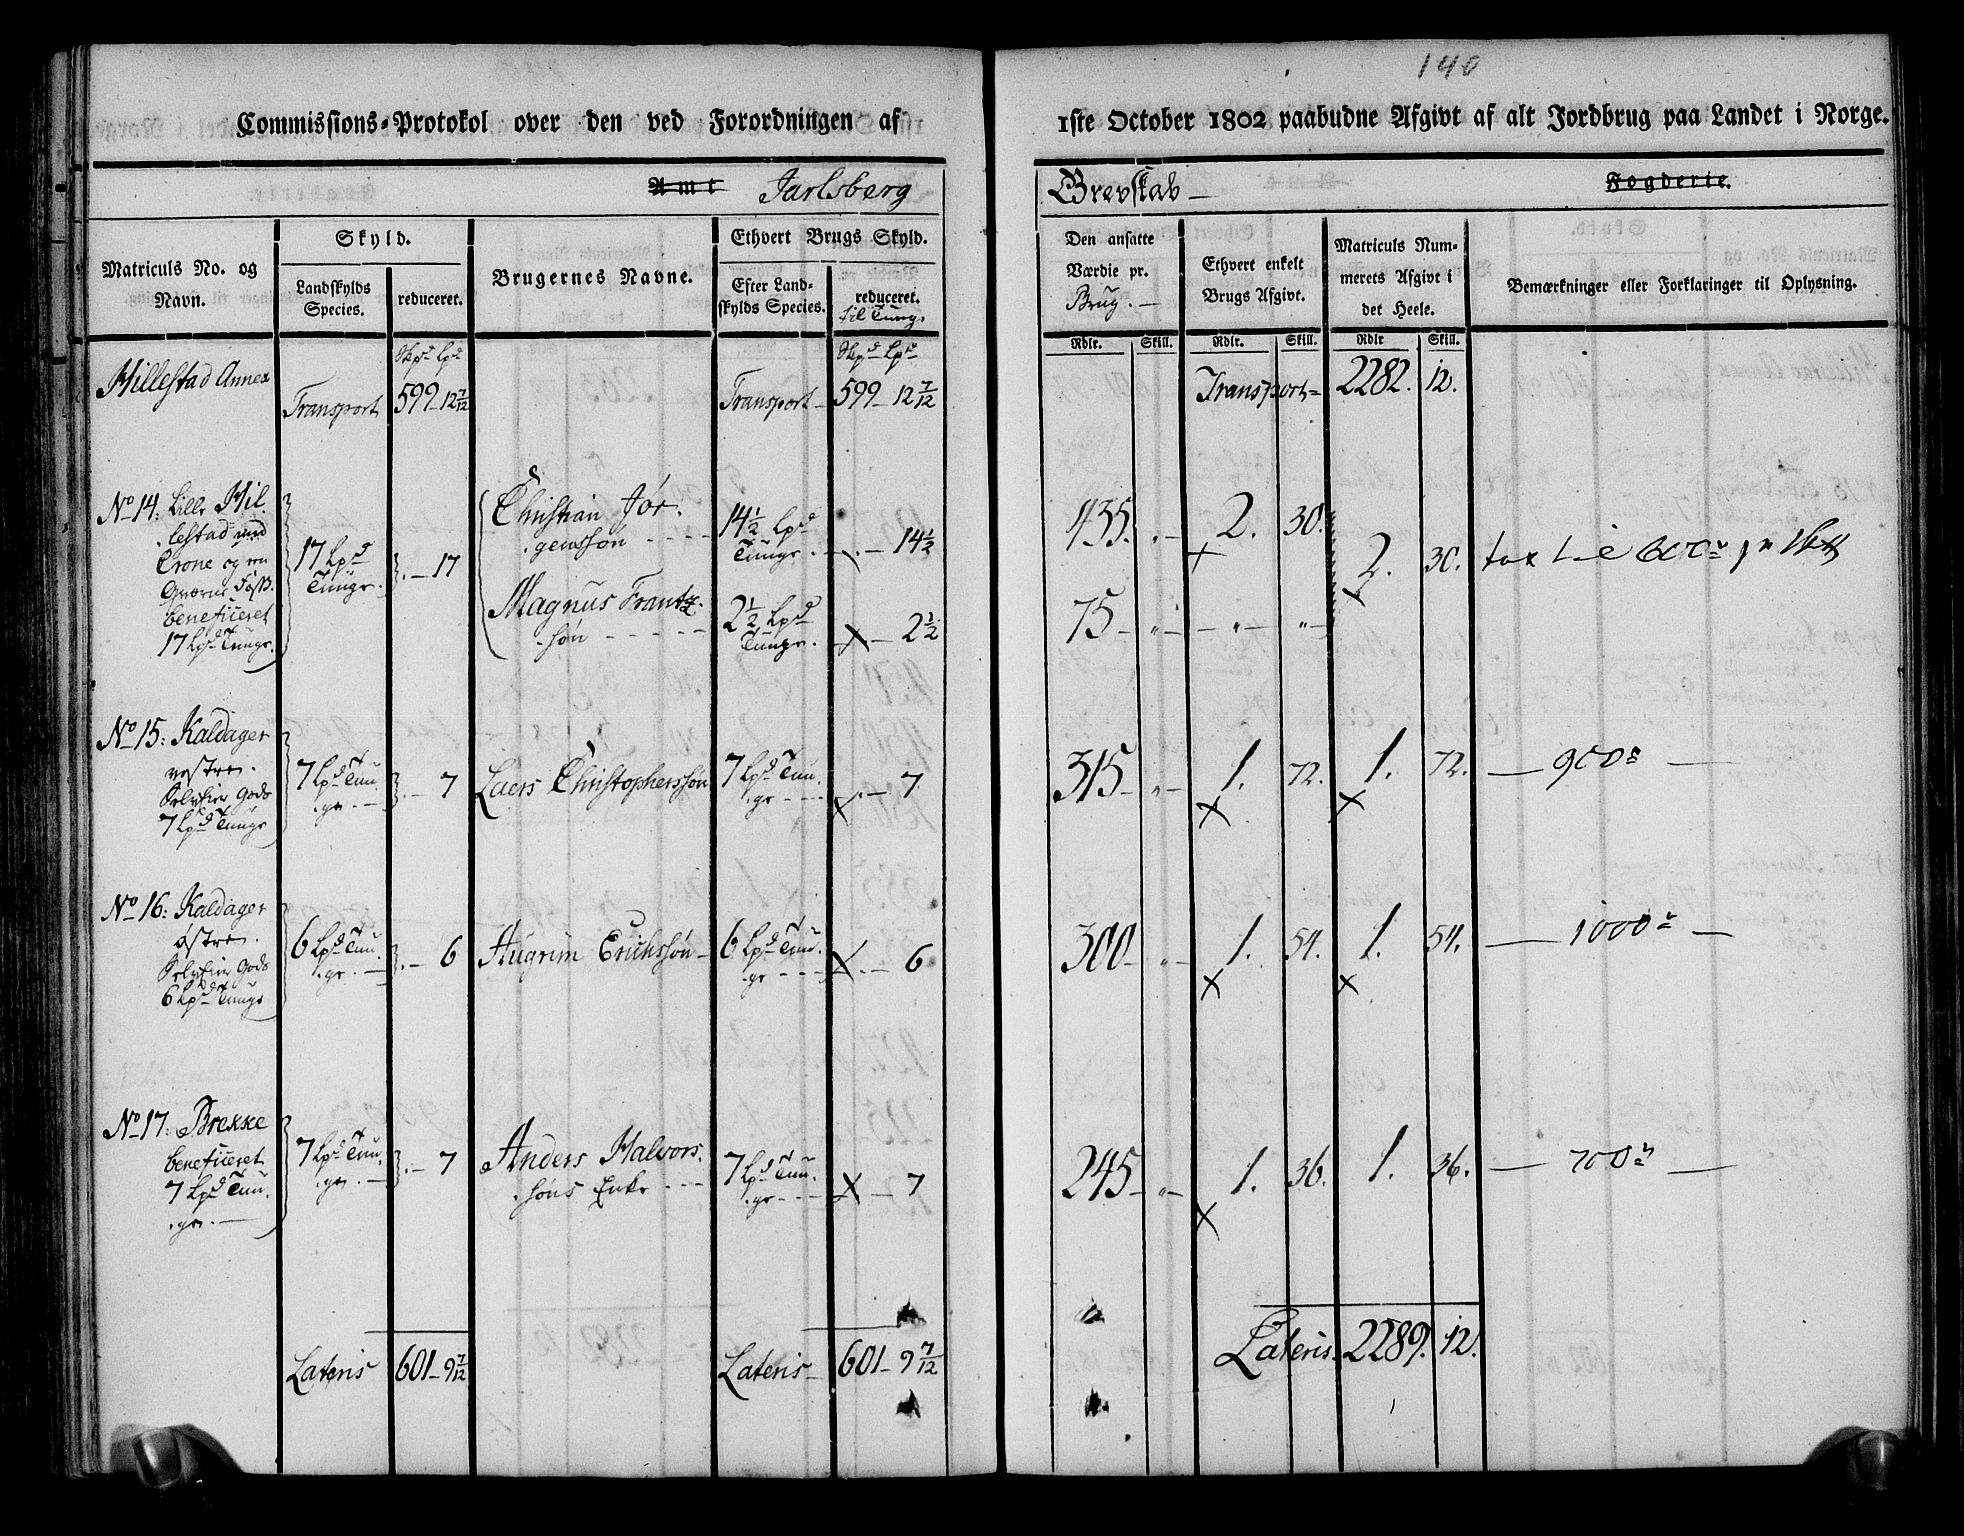 140
Commissions-Protokol over den ved Forordningen af 1ste October 1802 paabudne Afgivt af alt Jordbrug paa Landet i Norge.
Amt Jarlsberg Grevskab Fogderie.
Matriculs No. og Navn.
Skyld.
Landskylds Species.
reduceret.
Brugernes Navne.
Ethvert Brugs Skyld.
Efter Landskylds Species.
reduceret.
til Tung.
Den ansatte Værdie pr. Brug.
Ethvert enkelt Brugs Afgivt.
Matriculs Nummerets Afgivt i det Heele.
Bemærkninger eller Forklaringer til Oplysning.
Rdlr. Skill. Rdlr. Skill. Rdlr Skill.
Hillestad Annex
Skpd Lpd
Transport 599 - 12 7/12
Skpd Lpd
Transport - 599 - 12 7/12
Transport 2282. 12.
No 14: Lille Hil-
lestad med
Crone og en
Qværne Foss.
beneficeret
17 Lpd Tungr.
17 Lpd
Tungr.
- 17
Christian Jør-
gensson
14 1/2 Lpd
Tungr.
- 14 1/2
435. „ 2. 30.
Magnus Frantz-
søn
2 1/2 Lpd
Tungr.
- 2 1/2
75 - „ - „ - „
2. 30.
No 15: Kaldager
vestre.
Selveier Gods
7 Lpd Tungr
7 Lpd Tun-
gr.
- 7
Laers Christophersøn
7 Lpd Tun-
gr
- 7
315 - „ - 1. 72. 1. 72. — 900 —
No 16: Kaldager
østre.
Selveier Gods
6 Lpd Tungr
6 Lpd Tun-
gr.
- 6
Augrim Erichsøn
6 Lpd Tun-
gr
- 6
300 - „ - 1. 54. 1. 54. — 1000 —
No 17: Brekke
beneficeret
7 Lpd Tun-
gr.
7 Lpd Tun-
gr.
- 7
Anders Halvors-
søns Enke
7 Lpd Tun-
gr
- 7
245 - „ - 1. 36. 1. 36. — 700 —
Lateris 601 - 9 7/12
Lateris - 601 - 9 7/12
Lateris. 2289. 12.